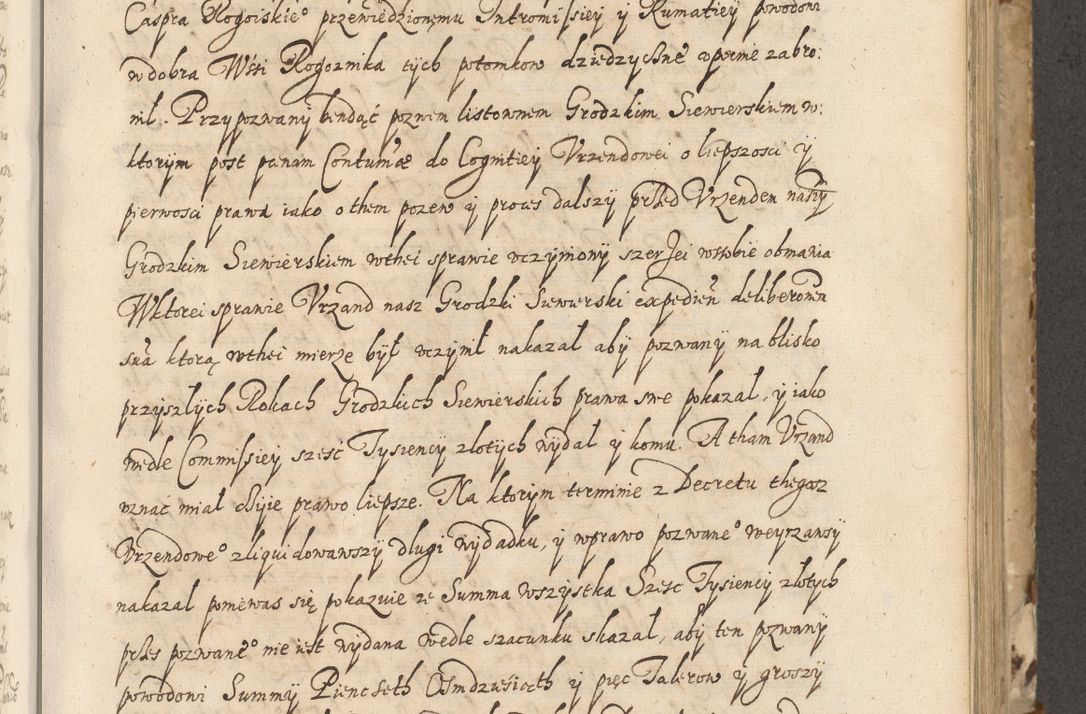 Caspra Rogoiskieº przewiedzionemu Intromissiey ÿ Rumatiey powodowi
w dobra Wsi Rogoznika tÿch potomkow dziedzyczne opornie zabro:
nil. Przypozwanÿ bendąć poznem listownem Grodzkim Siewierskiem w:
ktorÿm post pœnam Contumæ do Cognitieÿ Vrzendowei o liepszosci ÿ
pierwosci prawa iako o them pozew ÿ proces dalszÿ przed Vrzendem naszÿ
Grodzkim Siewierskiem wthei sprawie vczÿnionÿ szerzei wsobie obmawia
Wktorei sprawie Vrzand nasz Grodzki Siewierski expedień deliberonem
sua ktorą wthei mierze bÿł vczÿnił nakazał abÿ pozwanÿ nablisko
przÿszlÿch Rokach Grodzkich Siewierskich prawa swe pokazał, ÿ iako
wedle Commissieÿ szesc Tÿsiencÿ zlotÿch wÿdał ÿ komu. A tham Vrzand
vznać miał cziie prawo liepsze. Na ktorÿm terminie z Decretu thegosz
Vrzendoweº zliquidowawszÿ dlugi wÿdadku, ÿ wprawo pozwaneº weyrzawsÿ
nakazał poniewas się pokazuie ze Summa wszÿstka Szesc Tÿsiencÿ zlotÿch
przes pozwanéº nie iest wÿdana wedle szacunku skazał, abÿ ten pozwanÿ
powodowi Summÿ Piencseth Osmdziesiąth ÿ pięc Talerow ÿ groszÿ